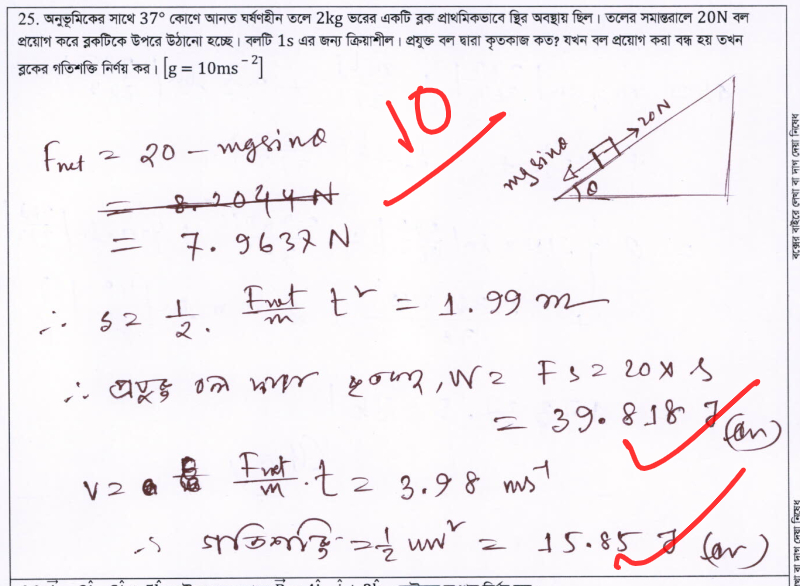 25. অনুভূমিকের সাথে 37° কোণে আনত ঘর্ষণহীন তলে 2kg ভরের একটি ব্লক প্রাথমিকভাবে স্থির অবস্থায় ছিল। তলের সমান্তরালে 20N বল
প্রয়োগ করে ব্লকটিকে উপরে উঠানো হচ্ছে। বলটি 1s এর জন্য ক্রিয়াশীল। প্রযুক্ত বল দ্বারা কৃতকাজ কত? যখন বল প্রয়োগ করা বন্ধ হয় তখন
ব্লকের গতিশক্তি নির্ণয় কর। [g = 10ms⁻²]
10
20N
mg sinθ
θ
Fnet = 20 − mg sinθ
= 8.2044 N
= 7.9637 N
∴ s = 1/2 . Fnet/m t² = 1.99 m
∴ প্রযুক্ত বল দ্বারা কৃতকাজ, W = Fs = 20 × s
= 39.818 J (Ans)
v = Fnet/m . t = 3.98 ms⁻¹
∴ গতিশক্তি = 1/2 mv² = 15.85 J (Ans)
বক্সের বাইরে লেখা বা দাগ দেয়া নিষেধ
বা দাগ দেয়া নিষেধ